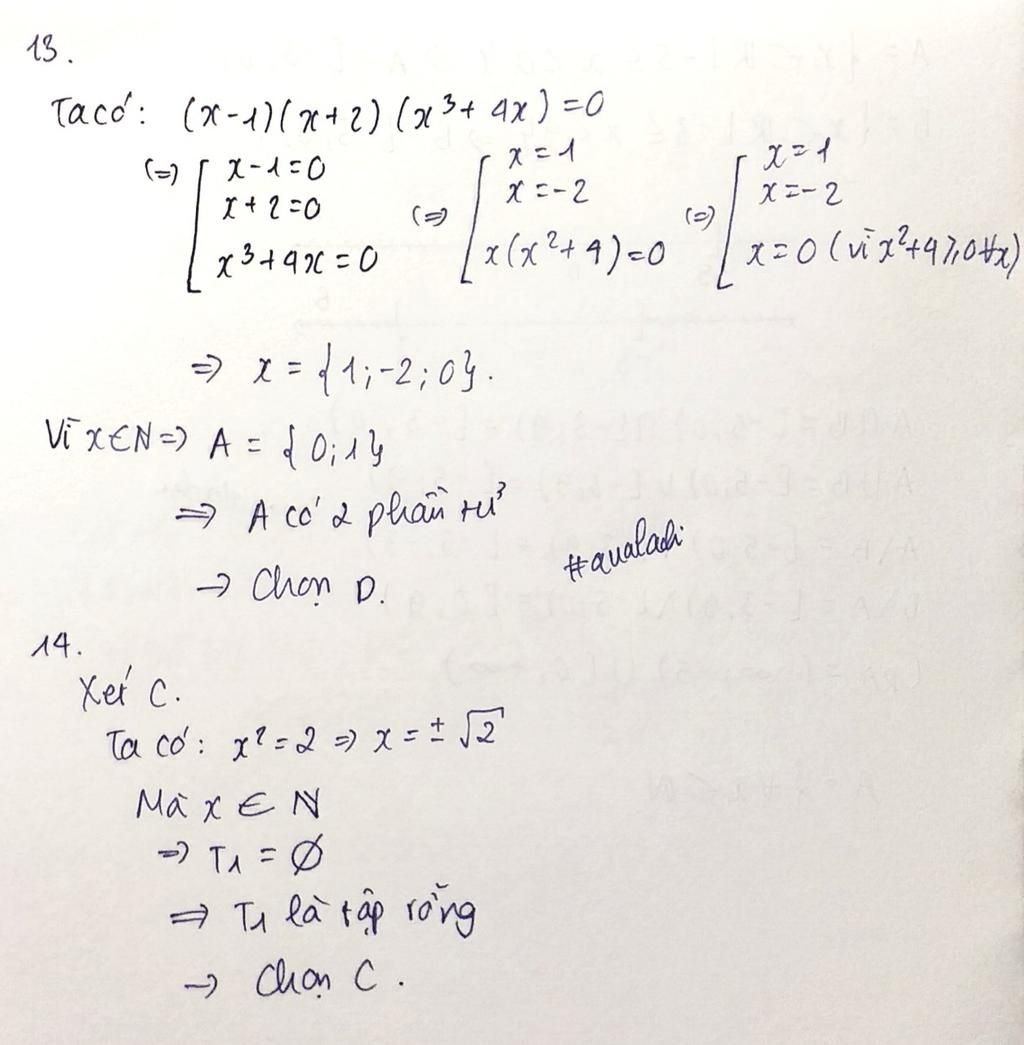 13.
Ta có: (x-1)(x+2)(x³+4x)=0
(=) [ x-1=0 (=) [ x=1 (=) [ x=1
x+2=0 x=-2 x=-2
x³+4x=0 x(x²+4)=0 x=0 (vì x²+4⩾0∀x)
=> x = {1;-2;0}.
Vì x∈N => A = {0;1}
=> A có 2 phần tử
-> Chọn D.
#qualachi
14.
Xét C.
Ta có: x²=2 => x=±√2
Mà x ∈ N
=> T1 = Ø
=> T1 là tập rỗng
-> Chọn C.